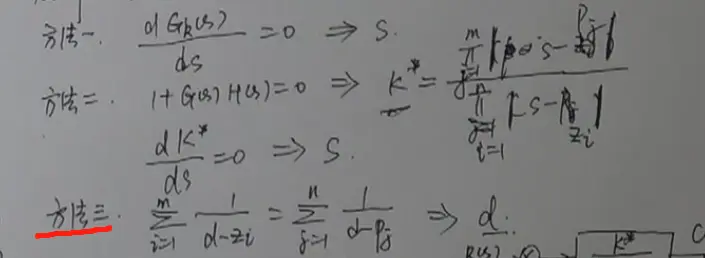 方法一. dGk(s)/ds = 0 ⇒ S.
方法二. 1+G(s)H(s)=0 ⇒ K* = ∏ j=1 m |s-pj| / ∏ i=1 |s-zi|
dK*/ds = 0 ⇒ S.
方法三. ∑ i=1 m 1/(d-zi) = ∑ j=1 n 1/(d-pj) ⇒ d.
R(s) K* C